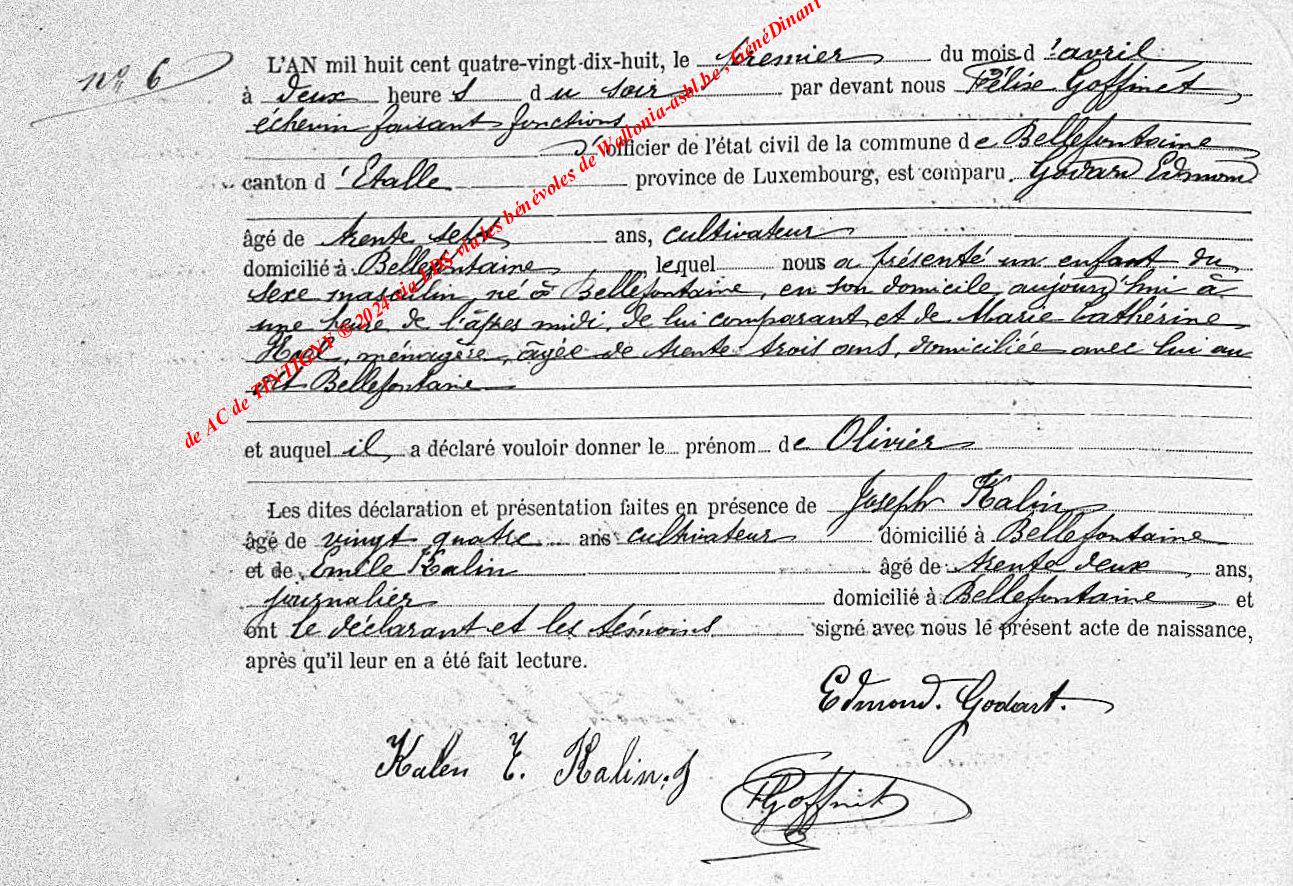 nº 6
L'AN mil huit cent quatre-vingt-dix-huit, le premier du mois d'avril
à deux heures du soir par devant nous Félixe Goffinet,
échevin faisant fonctions
d'officier de l'état civil de la commune de Bellefontaine
canton d'Etalle province de Luxembourg, est comparu Godard Edmond
âgé de trente sept ans, cultivateur
domicilié à Bellefontaine lequel nous a présenté un enfant du
sexe masculin, né à Bellefontaine, en son domicile aujourd'hui à
une heure de l'après midi, de lui comparant et de Marie Cathérine
ménagère, âgée de trente trois ans, domiciliée avec lui au
dit Bellefontaine
et auquel il a déclaré vouloir donner le prénom de Olivier
Les dites déclaration et présentation faites en présence de Joseph Kalin
âgé de vingt quatre ans cultivateur domicilié à Bellefontaine
et de Emile Kalin âgé de trente deux ans,
journalier domicilié à Bellefontaine et
ont le déclarant et les témoins signé avec nous le présent acte de naissance,
après qu'il leur en a été fait lecture.
Edmond. Godart.
Kalen E. Kalin. J
F Goffinet
de AC de TINTIGNY ® 2024 via LDS via les bénévoles de Wallonia-asbl.be, GénéDinant